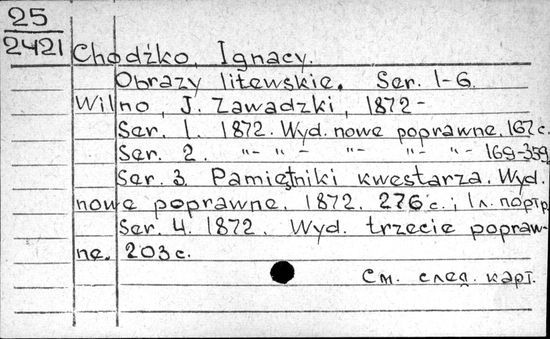 25
2421
Chodźko, Ignacy.
Obrazy litewskie. Ser. 1-6.
Wilno, J. Zawadzki, 1872-
Ser. 1. 1872. Wyd. nowe poprawne. 167 с.
Ser. 2. "- "- "- "- "- 169-359.
Ser. 3. Pamiętniki kwestarza. Wyd.
nowe poprawne. 1872. 276 с.; 1 л. портр.
Ser. 4. 1872. Wyd. trzecie popraw-
ne. 203 с.
См. след. карт.